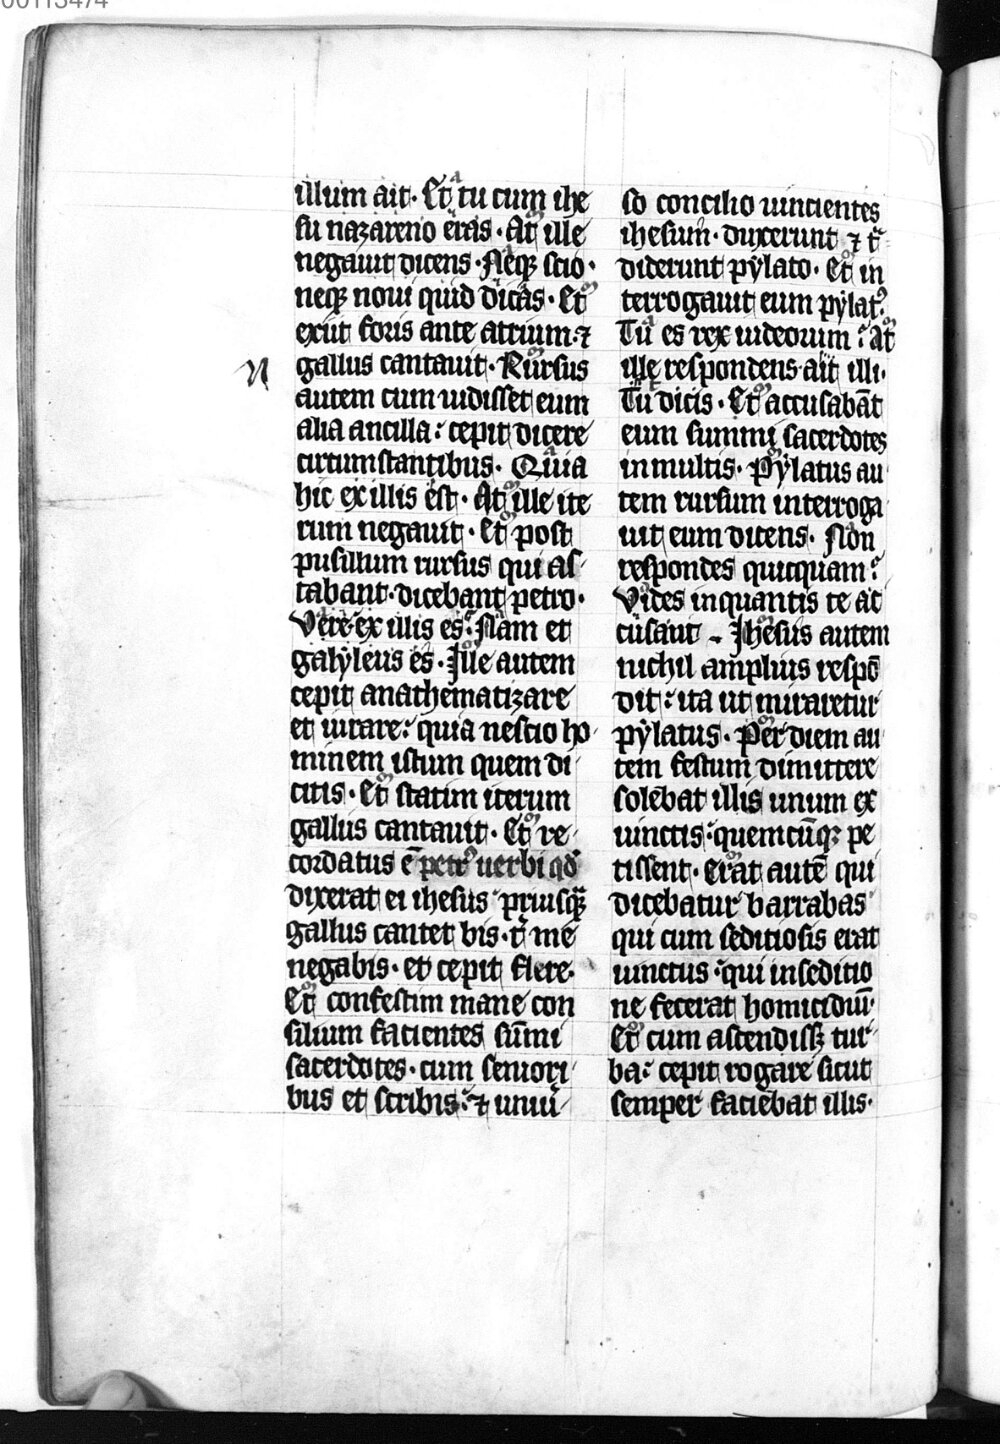 00113474
illum ait. Et tu cum ihe
su nazareno eras. At ille
negauit dicens. Neq scio.
neq noui quid dicas. Et
exiit foris ante atrium. ⁊
gallus cantauit. Rursus
autem cum uidisset eum
alia ancilla: cepit dicere
circumstantibus. Quia
hic ex illis est. At ille ite
rum negauit. Et post
pusillum rursus qui as
tabant. dicebant petro.
Vere ex illis es. Nam et
galyleus es. Ille autem
cepit anathematizare
et iurare: quia nescio ho
minem istum quem di
citis. Et statim iterum
gallus cantauit. Et re
cordatus ē petrꝰ uerbi qd̄
dixerat ei ihesus priusqᷓ
gallus cantet bis. t̓ me
negabis. et cepit flere.
Et confestim mane con
silium facientes sūmi
sacerdotes. cum seniori
bus et scribis: ⁊ uniū
so concilio uincientes
ihesum. duxerunt ⁊ tᷓ
diderunt pylato. Et in
terrogauit eum pylatꝰ.
Tu es rex iudeorum? At
ille respondens ait illi.
Tu dicis. Et accusabāt
eum summi sacerdotes
in multis. Pylatus au
tem rursum interroga
uit eum dicens. Non
respondes quicquam?
Vides in quantis te ac
cusant. Ihesus autem
nichil amplius respō
dit: ita ut miraretur
pylatus. Per diem au
tem festum dimittere
solebat illis unum ex
uinctis: quemcūqꝫ pe
tissent. Erat autē qui
dicebatur barrabas
qui cum seditiosis erat
uinctus: qui in seditio
ne fecerat homicidiū.
Et cum ascendissꝫ tur
ba: cepit rogare sicut
semper faciebat illis.
n